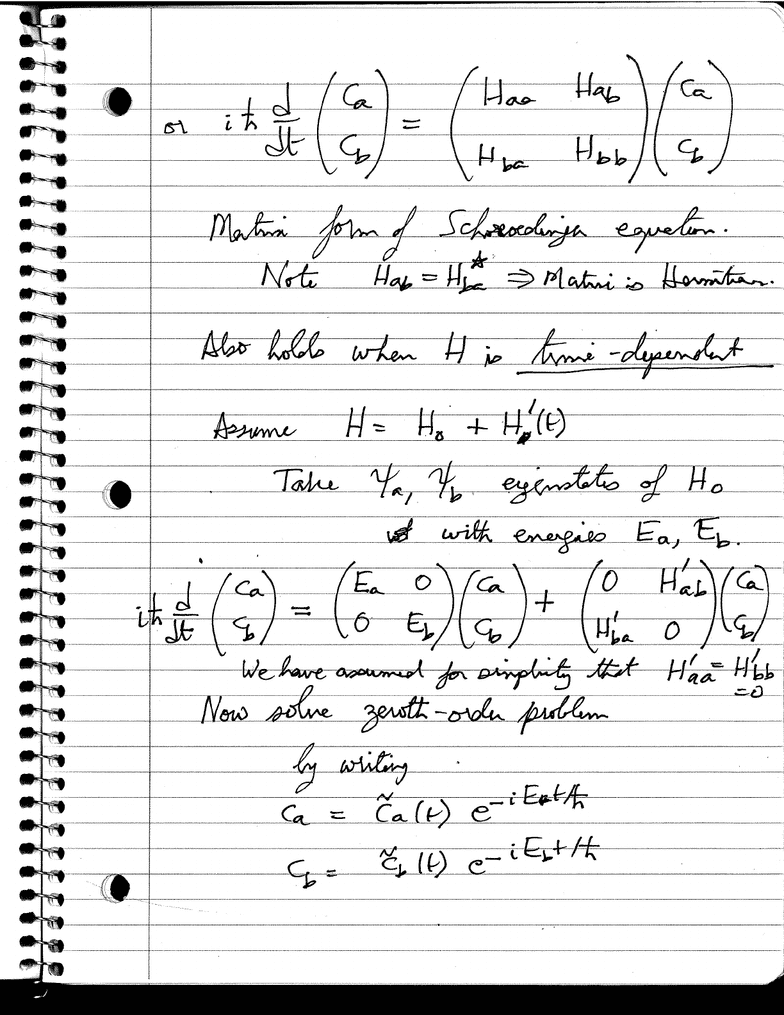 or iħ d/dt (Ca Cb) = (Haa Hab Hba Hbb) (Ca Cb)
Matrix form of Schroedinger equation.
Note Hab = Hba* ⇒ Matrix is Hermitian.
Also holds when H is time-dependent
Assume H = H₀ + H'(t)
Take Ψa, Ψb eigenstates of H₀
with energies Ea, Eb.
iħ d/dt (Ca Cb) = (Ea 0 0 Eb) (Ca Cb) + (0 H'ab H'ba 0) (Ca Cb)
We have assumed for simplicity that H'aa = H'bb
= 0
Now solve zeroth-order problem
by writing
Ca = C̃a(t) e^-iEat/ħ
Cb = C̃b(t) e^-iEbt/ħ